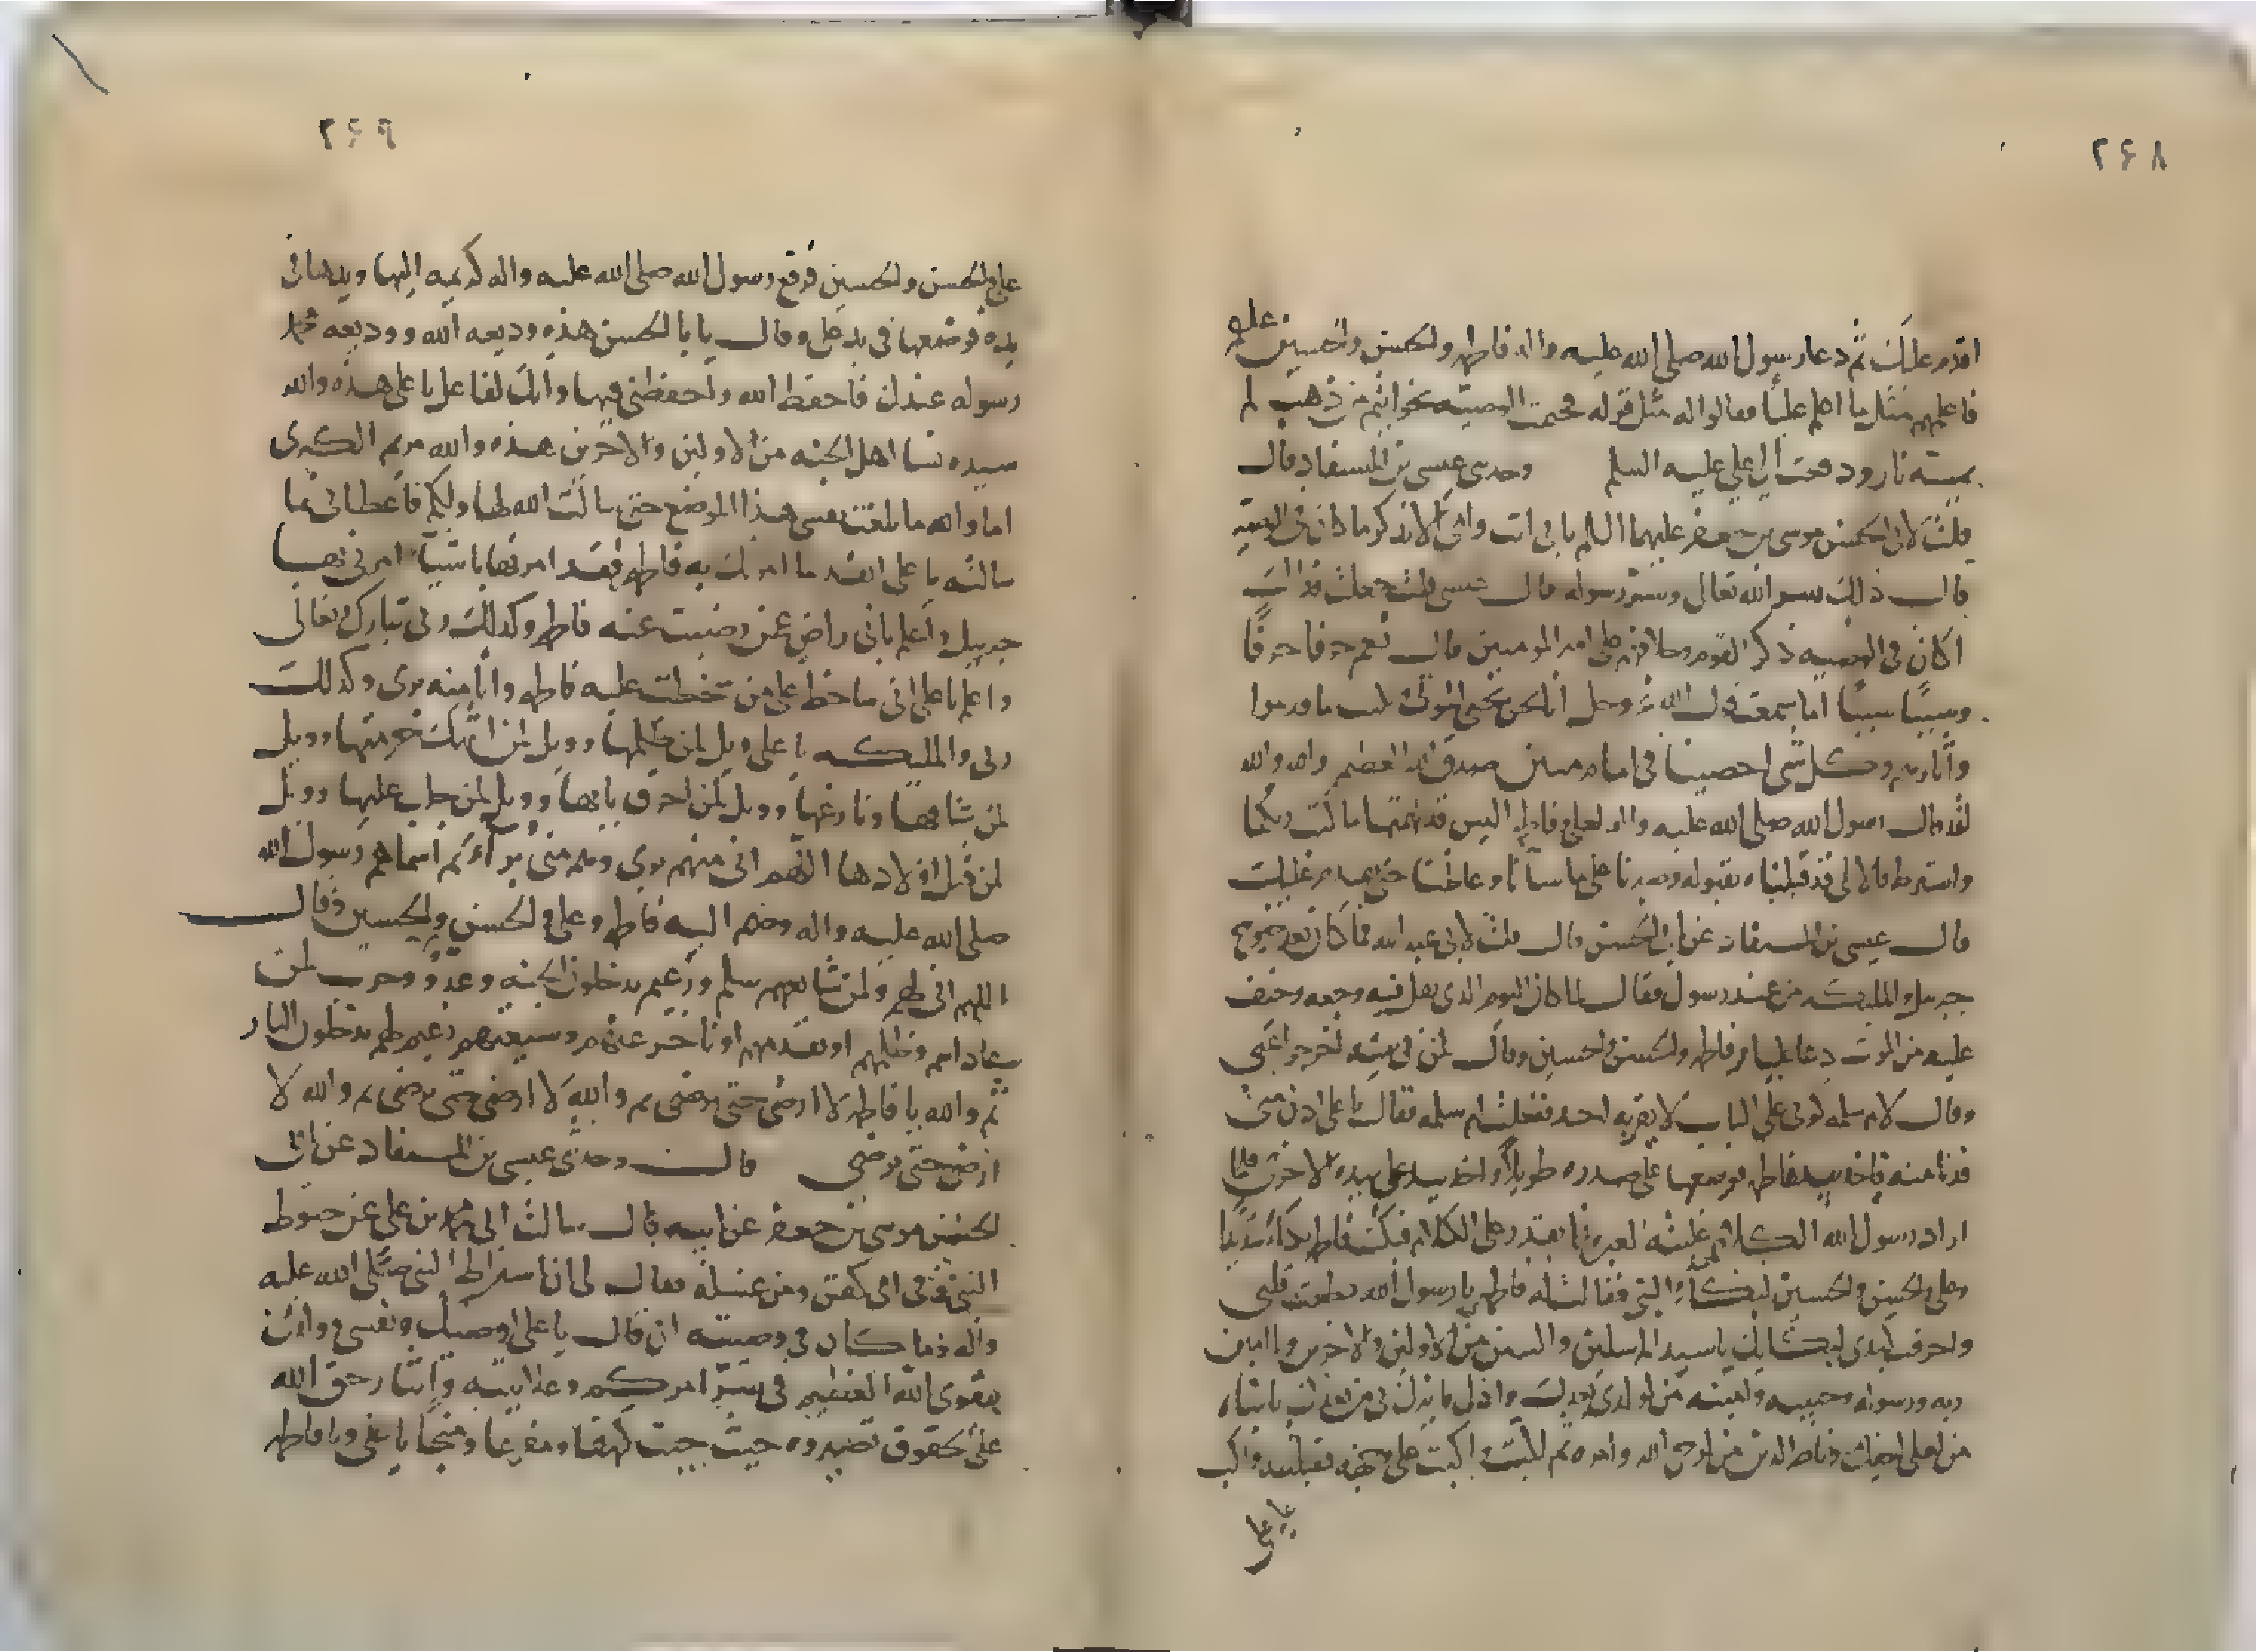 ٢۶٨
اقدم عليك ثم دعا رسول الله صلى الله عليه واله فاطمه والحسن والحسين
فاعلمهم مثل ما اعلم عليا فقالوا له مثل قوله فختمت الوصيه بخواتيم من ذهب لم
تمسه نار ودفعت الى علي عليه السلم وحدثنى عيسى بن المستفاد قال
قلت لابى الحسن موسى بن جعفر عليهما السلم بابى انت وامى الا تذكر ما كان فى الوصيه
قال ذلك سر الله تعالى وسر رسوله قال عيسى قلت جعلت فداك
اكان فى الوصيه ذكر القوم وخلافهم على امير المومنين قال نعم حرفا حرفًا
وسببًا سببًا اما سمعت قول الله عز وجل انا نحن نحيى الموتى نكتب ما قدموا
واثارهم وكل شى احصيناه فى امام مبين صدق الله العظيم والله والله
لقد قال رسول الله صلى الله عليه واله لعلى وفاطمه اليس قد فهمتما ما كتب ربكما
واشترط فقالا بلى قد قبلناه بقبوله وصبرنا على ما سآءنا وغاظنا
قال عيسى بن المستفاد عن ابى الحسن قال قلت لابى عبد الله فما كان بعد خروج
جبرييل والمليكه من عند رسول فقال لما كان اليوم الذى ثقل فيه وجعه وخيف
عليه من الموت دعا عليا وفاطمه والحسن والحسين وقال لمن فى بيته اخرجوا عنى
وقال لام سلمه كونى على الباب لا يقربه احد ففعلت ام سلمه فقال يا على ادن منى
فدنا منه فاخذ بيد فاطمه فوضعها على صدره طويلاً واخذ بيد على بيده الاخرى فلما
اراد رسول الله الكلام غلبته العبره فلم يقدر على الكلام فبكت فاطمه بكآءً شديدًا
وعلى والحسن والحسين لبكاءِ النبى فقالت له فاطمه يا رسول الله قطعت قلبى
واحرقت كبدى لبكائك يا سيد المرسلين والنبيين من الاولين والاخرين ويا امين
ربه ورسوله وحبيبه ونبيه من لولدى بعدك
من لعلى اخيك وناصر الدين من لوحى الله وامره ثم بكت واكبت على وجهه فقبلته واكب
٢۶٩
على والحسن والحسين فرفع رسول الله صلى الله عليه واله كريمه اليها ويدها فى
يده فوضعها فى يد على وقال يا با الحسن هذه وديعه الله ووديعه محمد
رسوله عندك فاحفظ الله واحفظنى فيها وانك لفاعل يا على هذه والله
سيده نسا اهل الجنه من الاولين والاخرين هذه والله مريم الكبرى
اما والله ما بلغت نفسى هذا الموضع حتى سالت الله لها ولكم فاعطانى ما
سالته يا على انفذ ما امرتك به فاطمه فقد امرتها باشيآ امرنى بها
جبرييل واعلم يا على انى راض عمن رضيت عنه فاطمه وكذلك ربى تبارك وتعالى
واعلم يا على انى ساخط على من سخطت عليه فاطمه وانا منه برى وكذلك
ربى والمليكه يا على ويل لمن ظلمها وويل لمن انتهك حرمتها وويل
لمن شاقها ونازعها وويل لمن احرق بابها وويل لمن جلب عليها وويل
لمن قتل اولادها اللهم انى منهم برى وهم منى برآء ثم اسماهم رسول الله
صلى الله عليه واله وضم اليه فاطمه وعلى والحسن والحسين وقال
اللهم انى لهم ولمن شايعهم سلم وزعيم يدخلون الجنه وعدوّ وحرب لمن
عاداهم وظلمهم او تقدمهم او تاخر عنهم وشيعتهم زعيم لهم يدخلون النار
ثم والله يا فاطمه لا ارضى حتى ترضى ثم والله لا ارضى حتى ترضى ثم والله لا
ارضى حتى ترضى قال وحدثنى عيسى بن المستفاد عن ابى
الحسن موسى بن جعفر عن ابيه قال سالت ابى محمد بن على عن حنوط
النبى وفى اى كفن ومن غسله فقال لى ان اشراط النبى صلى الله عليه
واله وما كان فى وصيته ان قال يا على اوصيك ونفسى ووالدى
بتقوى الله العظيم فى سر امركم وعلانيته وايثار حق الله
على الحقوق تصيروه حيث جيت كهفا ومفزعًا ومنجًا يا على ويا فاطمه